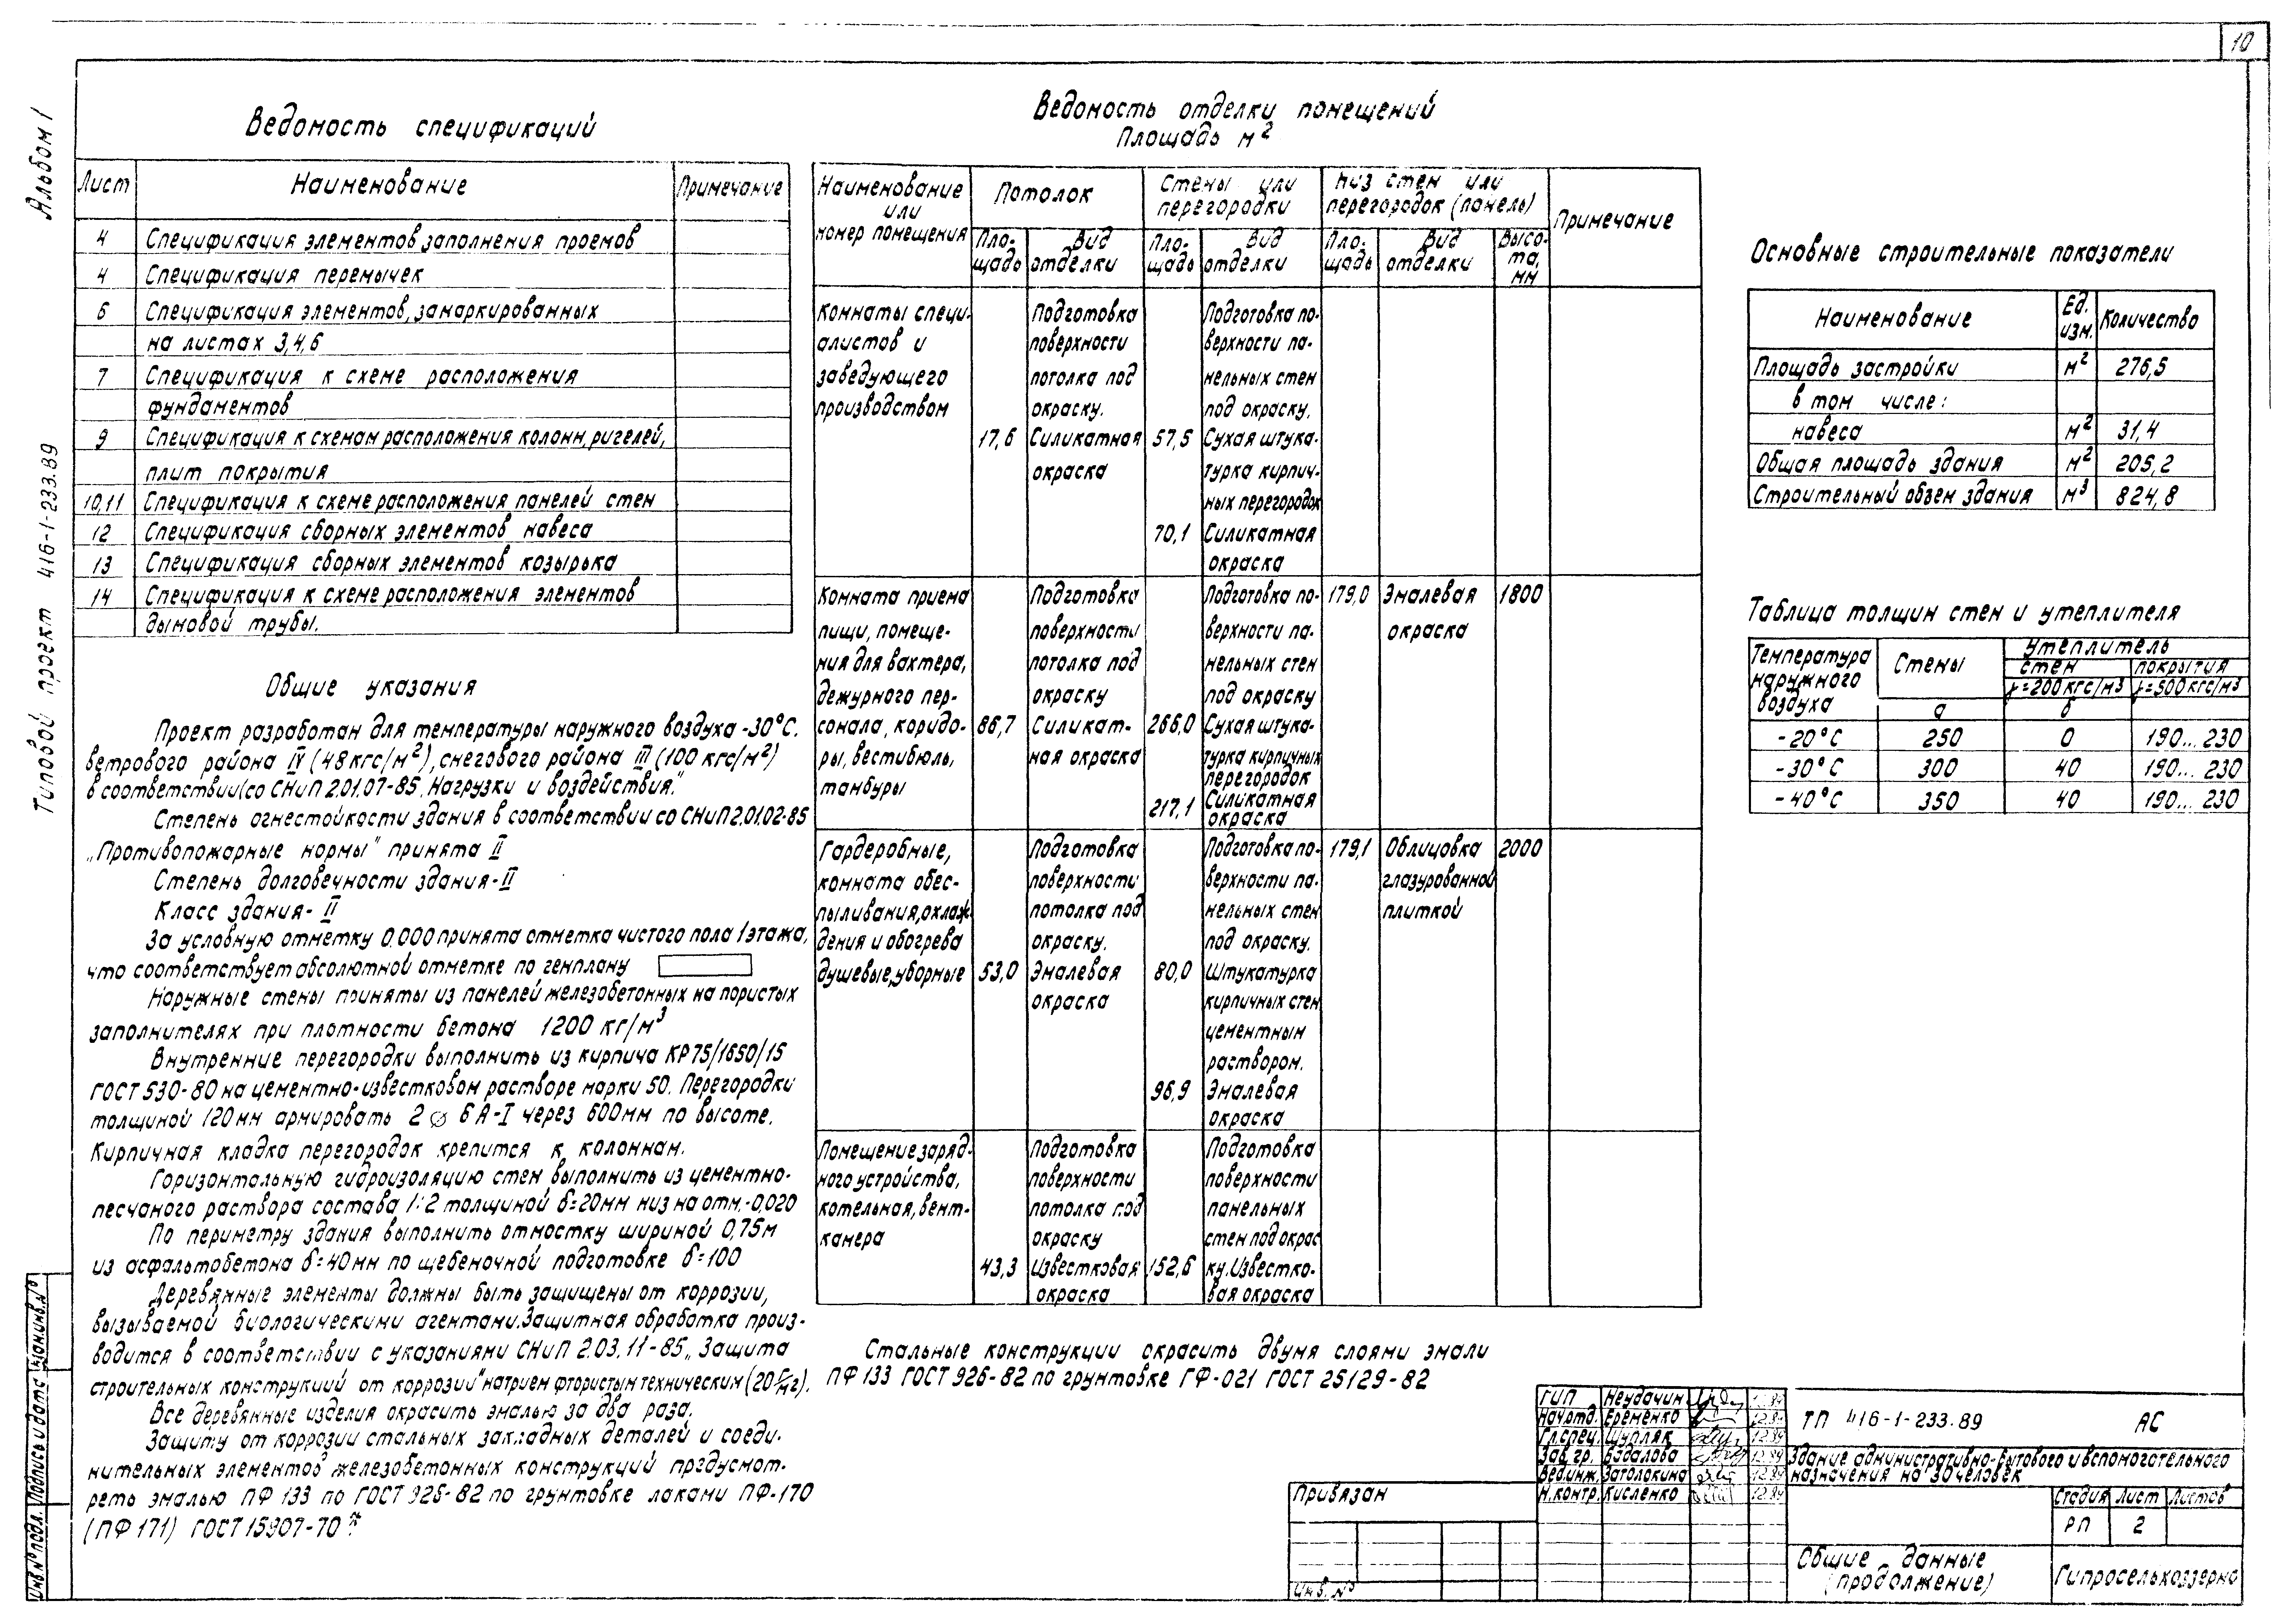 10
Альбом 1
Типовой проект 416-1-233.89
Ведомость спецификаций
Лист Наименование Примечание
4 Спецификация элементов заполнения проемов
4 Спецификация перемычек
6 Спецификация элементов, замаркированных
на листах 3,4,6
7 Спецификация к схеме расположения
фундаментов
9 Спецификация к схемам расположения колонн, ригелей,
плит покрытия
10,11 Спецификация к схеме расположения панелей стен
12 Спецификация сборных элементов навеса
13 Спецификация сборных элементов козырька
14 Спецификация к схеме расположения элементов
дымовой трубы.
Общие указания
Проект разработан для температуры наружного воздуха -30°С.
ветрового района IV (48 кгс/м²), снегового района III (100 кгс/м²)
в соответствии со СНиП 2.01.07-85 „Нагрузки и воздействия."
Степень огнестойкости здания в соответствии со СНиП 2.01.02-85
„Противопожарные нормы" принята II
Степень долговечности здания-II
Класс здания- II
За условную отметку 0.000 принята отметка чистого пола 1 этажа,
что соответствует абсолютной отметке по генплану
Наружные стены приняты из панелей железобетонных на пористых
заполнителях при плотности бетона 1200 кг/м³
Внутренние перегородки выполнить из кирпича КР75/1650/15
ГОСТ 530-80 на цементно-известковом растворе марки 50. Перегородки
толщиной 120мм армировать 2 ∅ 6 А-I через 600мм по высоте.
Кирпичная кладка перегородок крепится к колоннам.
Горизонтальную гидроизоляцию стен выполнить из цементно-
песчаного раствора состава 1:2 толщиной δ=20мм низ на отм.-0,020
По периметру здания выполнить отмостку шириной 0,75м
из асфальтобетона δ=40мм по щебеночной подготовке δ=100
Деревянные элементы должны быть защищены от коррозии,
вызываемой биологическими агентами. Защитная обработка произ-
водится в соответствии с указаниями СНиП 2.03.11-85 „Защита
строительных конструкций от коррозии" натрием фтористым техническим (20 г/м²).
Все деревянные изделия окрасить эмалью за два раза.
Защиту от коррозии стальных закладных деталей и соеди-
нительных элементов железобетонных конструкций предусмот-
реть эмалью ПФ 133 по ГОСТ 926-82 по грунтовке лаками ПФ-170
(ПФ 171) ГОСТ 15907-70*
Ведомость отделки помещений
Площадь м²
Наименование или номер помещения
Потолок
Стены или перегородки
Низ стен или перегородок (панель)
Примечание
Пло- щадь Вид отделки Пло- щадь Вид отделки Пло- щадь Вид отделки Высо- та, мм
Комнаты специ- Подготовка Подготовка по-
алистов и поверхности верхности па-
заведующего потолка под нельных стен
производством окраску. под окраску.
17,6 Силикатная 57,5 Сухая штука-
окраска турка кирпич-
ных перегородок
70,1 Силикатная
окраска
Комната приема Подготовка Подготовка по- 179,0 Эмалевая 1800
пищи, помеще- поверхности верхности па- окраска
ния для вахтера, потолка под нельных стен
дежурного пер- окраску под окраску
сонала, коридо- 86,7 Силикат- 266,0 Сухая штука-
ры, вестибюль, ная окраска турка кирпичных
перегородок
тамбуры 217,1 Силикатная
окраска
Гардеробные, Подготовка Подготовка по- 179,1 Облицовка 2000
комната обес- поверхности верхности па- глазурованной
пыливания, охлаж- потолка под нельных стен плиткой
дения и обогрева окраску. под окраску.
душевые, уборные 53,0 Эмалевая 80,0 Штукатурка
окраска кирпичных стен
цементным
раствором.
96,9 Эмалевая
окраска
Помещение заряд- Подготовка Подготовка
ного устройства, поверхности поверхности
котельная, вент- потолка под панельных
камера окраску стен под окрас
43,3 Известковая 152,6 ку. Известко-
окраска вая окраска
Стальные конструкции окрасить двумя слоями эмали
ПФ 133 ГОСТ 926-82 по грунтовке ГФ-021 ГОСТ 25129-82
Основные строительные показатели
Наименование Ед. изм. Количество
Площадь застройки м² 276,5
в том числе:
навеса м² 31,4
Общая площадь здания м² 205,2
Строительный объем здания м³ 824,8
Таблица толщин стен и утеплителя
Температура наружного воздуха Стены Утеплитель
стен покрытия
γ=200 кгс/м³ γ=500 кгс/м³
а б
-20°С 250 0 190... 230
-30°С 300 40 190... 230
-40°С 350 40 190... 230
Привязан
Инв. №
ГИП Неудачин
Нач.отд. Еременко 12.89
Гл.спец. Шупляк 12.89
Зав.гр. Бздалова 12.89
Вед.инж. Затолокина 12.89
Н.контр. Кисленко 12.89
ТП 416-1-233.89 АС
Здание административно-бытового и вспомогательного
назначения на 30 человек
Стадия Лист Листов
РП 2
Общие данные
(продолжение)
Гипросельхоззерно
Инв.№ подл. Подпись и дата Взам.инв.№